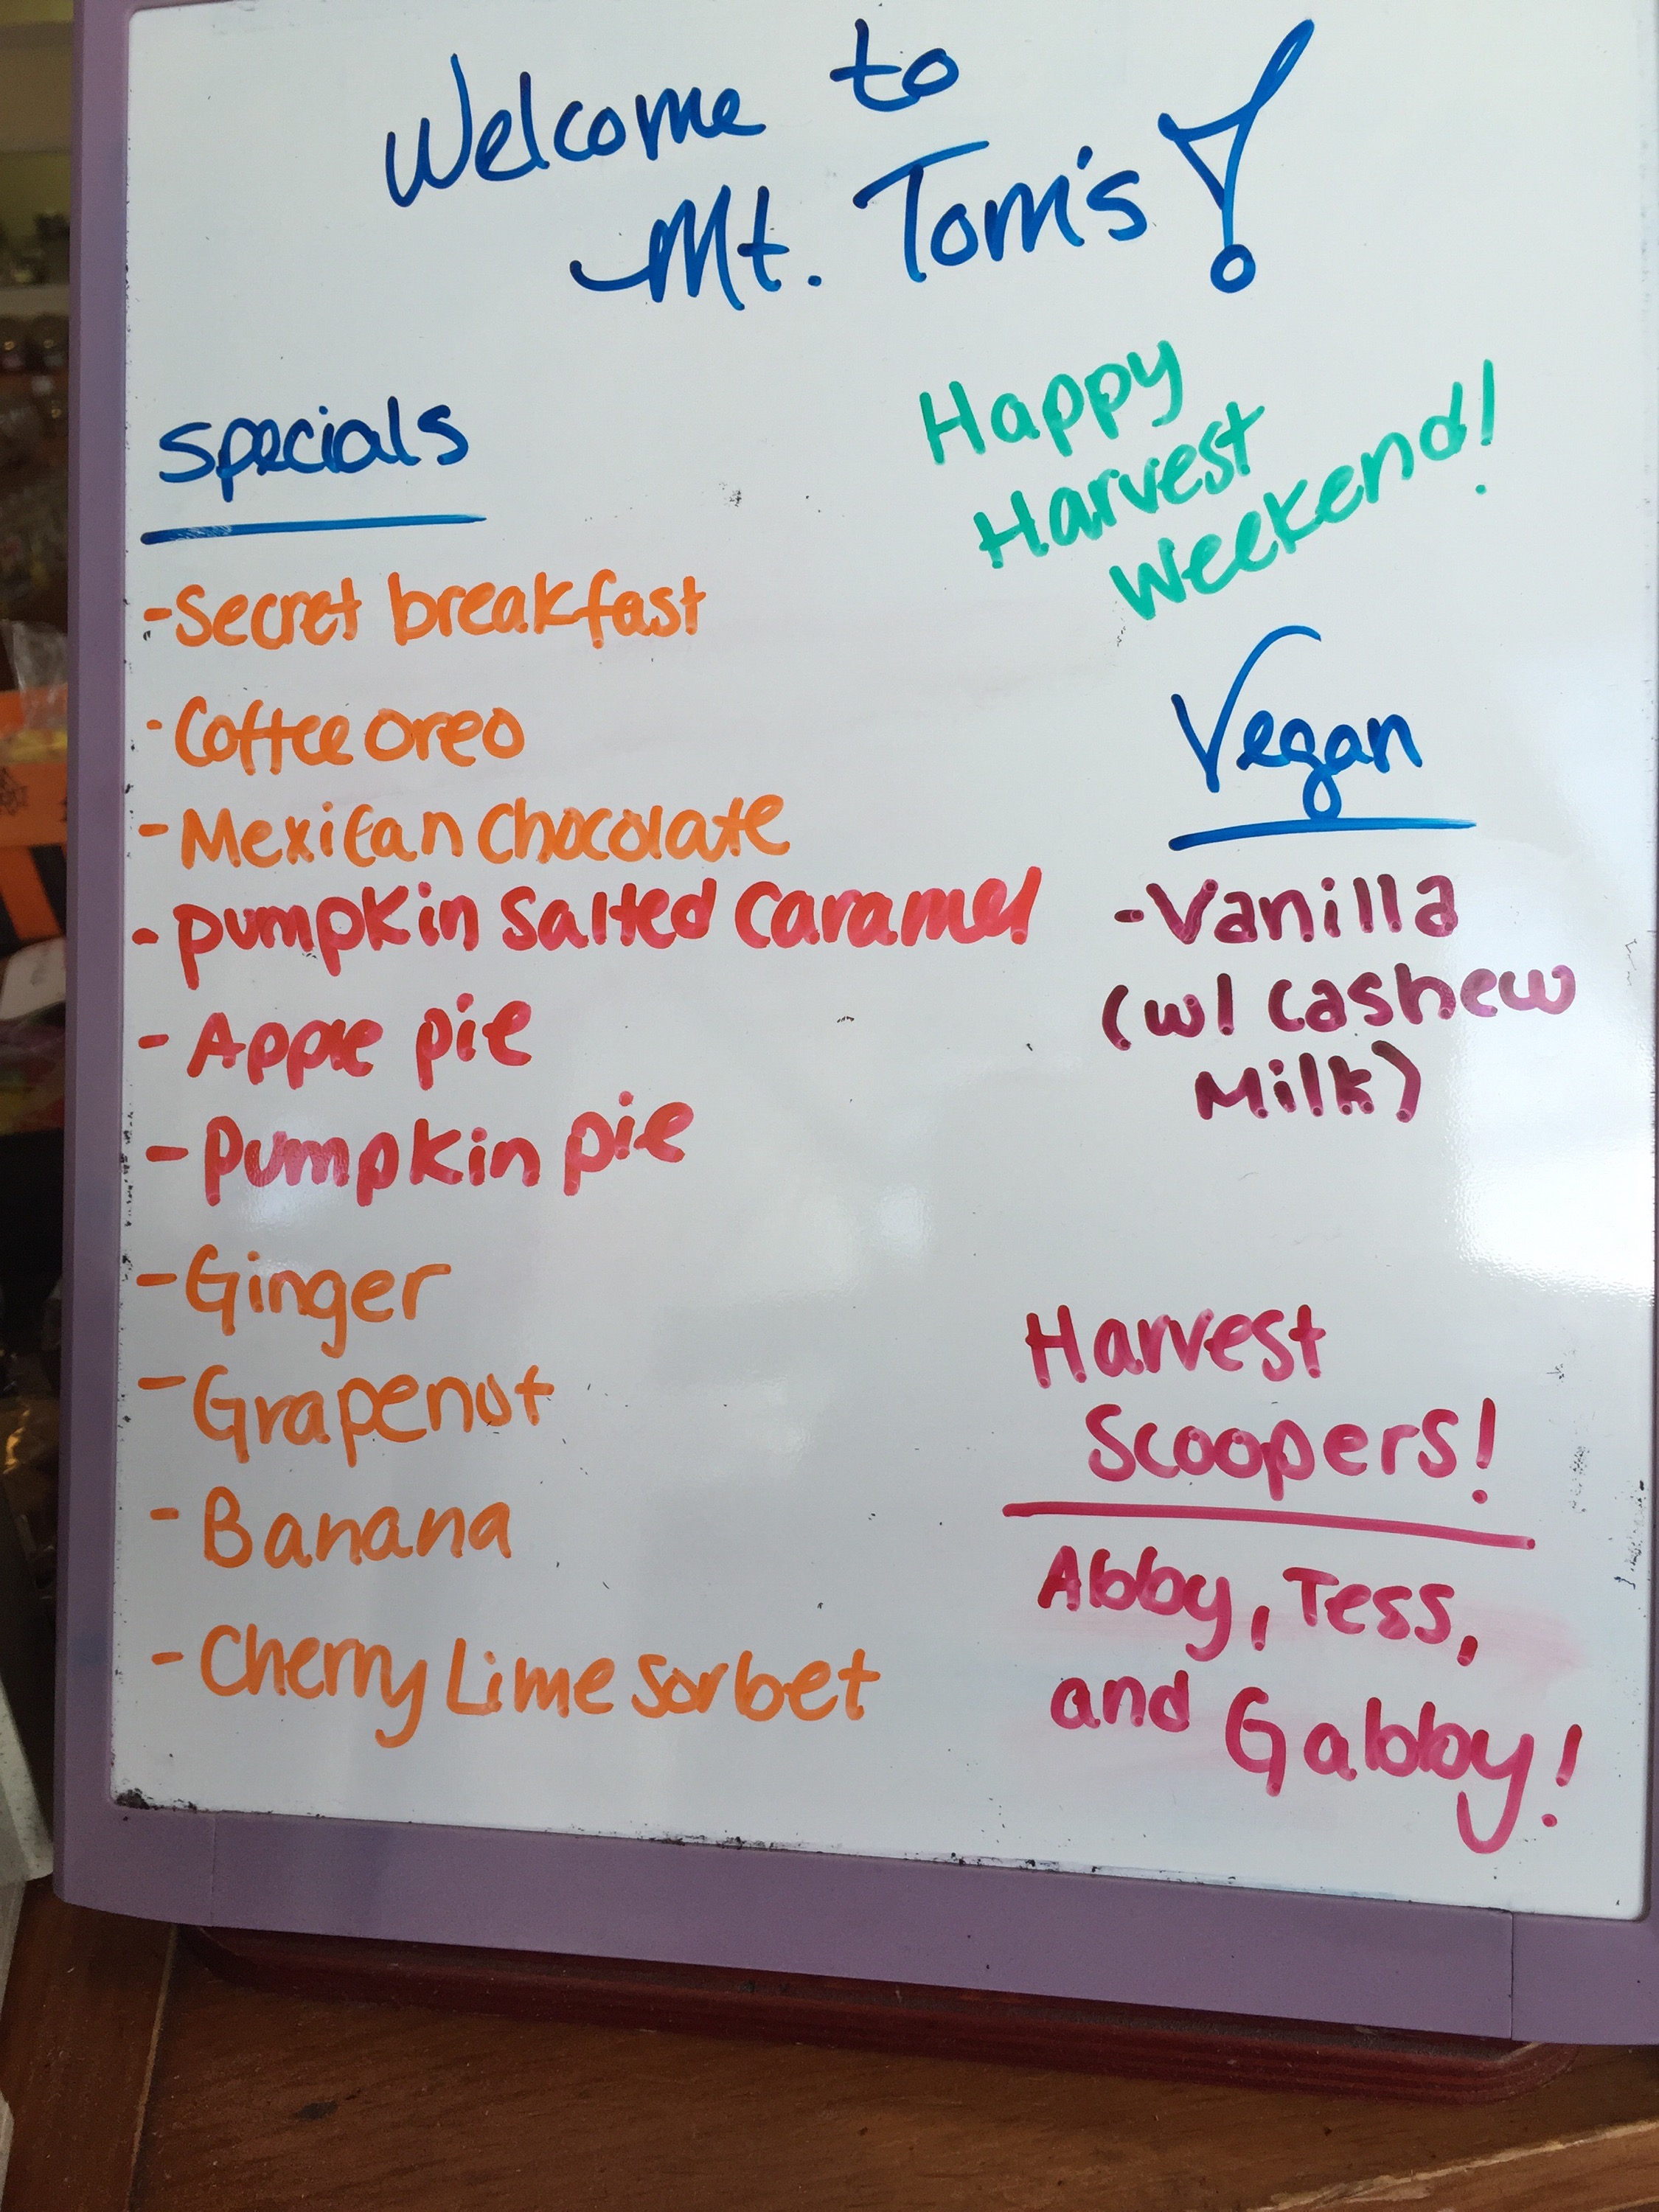 Welcome to
Mt. Tom's!
Happy
Harvest
Weekend!
Specials
- Secret breakfast
- Coffee oreo
- Mexican Chocolate
- pumpkin Salted Caramel
- Apple pie
- Pumpkin pie
- Ginger
- Grapenut
- Banana
- Cherry Lime Sorbet
Vegan
- Vanilla
(w/ Cashew
Milk)
Harvest
Scoopers!
Abby, Tess,
and Gabby!